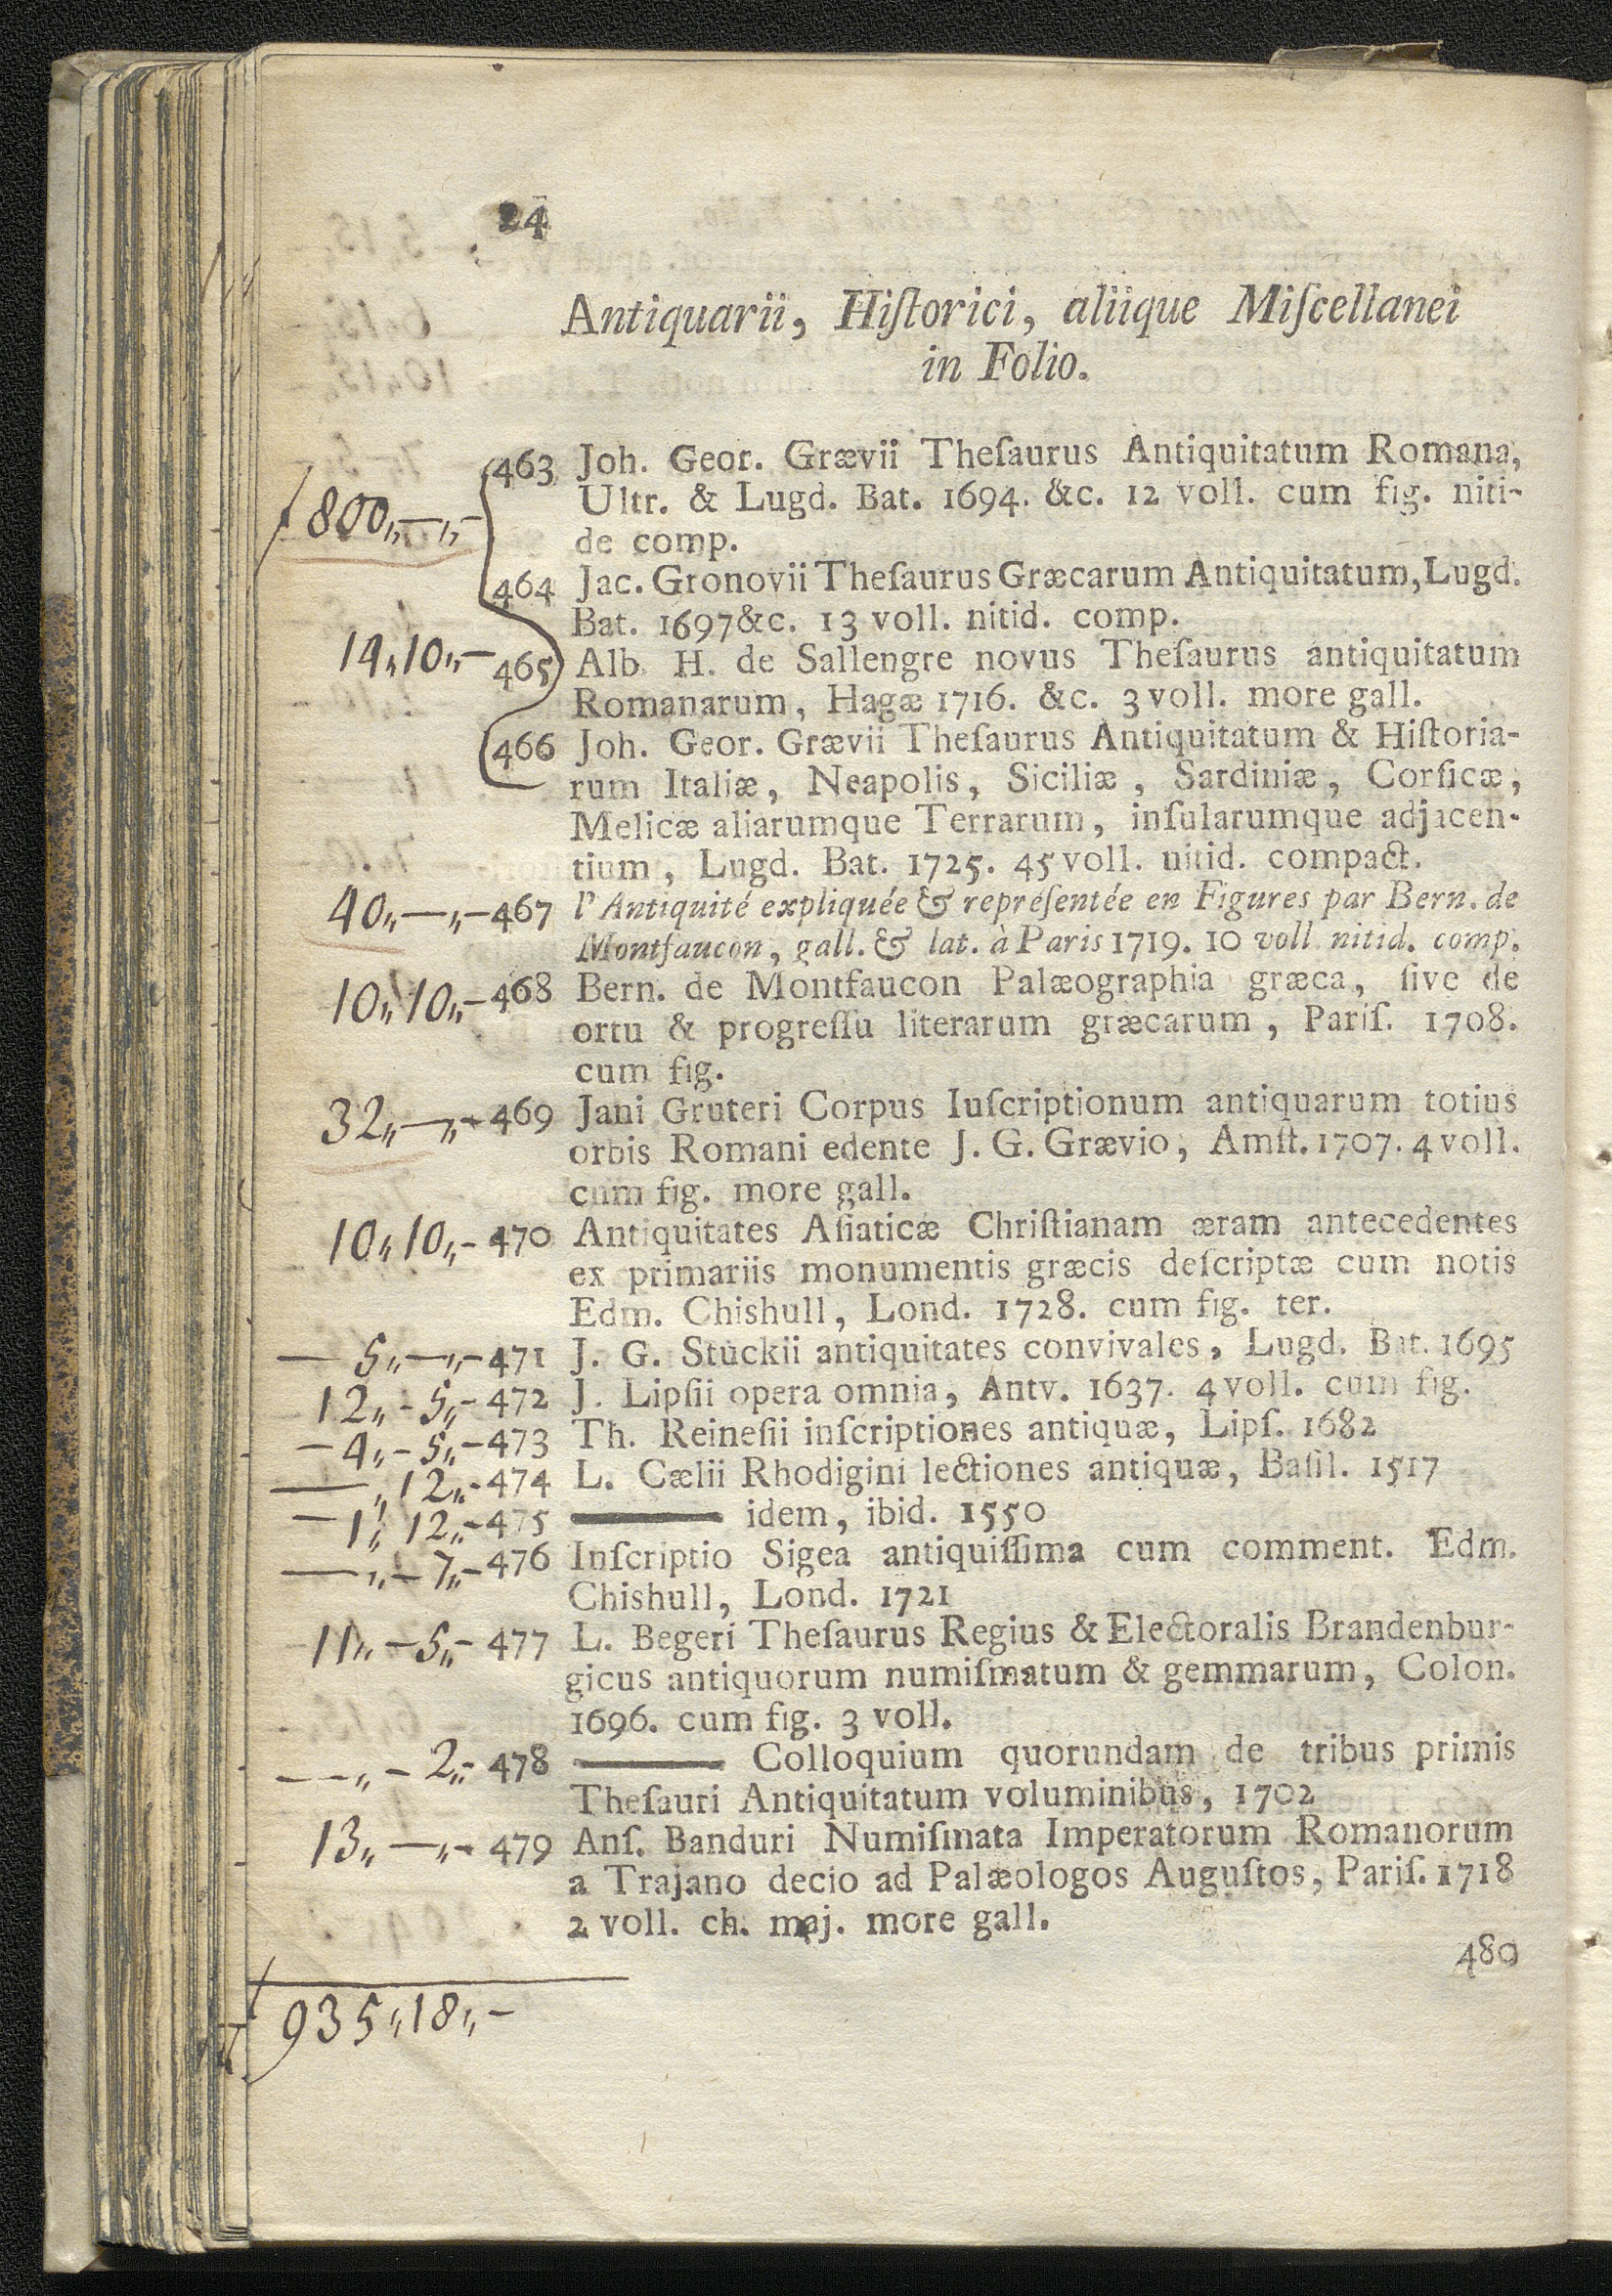 24
Antiquarii, Hiſtorici, aliique Miſcellanei
in Folio.
463 Joh. Geor. Grævii Theſaurus Antiquitatum Romana,
Ultr. & Lugd. Bat. 1694. &c. 12 voll. cum fig. niti-
ƒ 800,,—,,-
de comp.
464 Jac. Gronovii Theſaurus Græcarum Antiquitatum, Lugd.
Bat. 1697 &c. 13 voll. nitid. comp.
14,,10,,- 465 Alb. H. de Sallengre novus Theſaurus antiquitatum
Romanarum, Hagæ 1716. &c. 3 voll. more gall.
466 Joh. Geor. Grævii Theſaurus Antiquitatum & Hiſtoria-
rum Italiæ, Neapolis, Siciliæ, Sardiniæ, Corſicæ,
Melicæ aliarumque Terrarum, inſularumque adjacen-
tium, Lugd. Bat. 1725. 45 voll. nitid. compact.
40,,—,,- 467 l'Antiquité expliquée & repréſentée en Figures par Bern. de
Montfaucon, gall. & lat. à Paris 1719. 10 voll. nitid. comp.
10,,10,,- 468 Bern. de Montfaucon Palæographia græca, ſive de
ortu & progreſſu literarum græcarum, Pariſ. 1708.
cum fig.
32,,—,,- 469 Jani Gruteri Corpus Iuſcriptionum antiquarum totius
orbis Romani edente J. G. Grævio, Amſt. 1707. 4 voll.
cum fig. more gall.
10,,10,,- 470 Antiquitates Aſiaticæ Chriſtianam æram antecedentes
ex primariis monumentis græcis deſcriptæ cum notis
Edm. Chishull, Lond. 1728. cum fig. ter.
— 5,,—,,- 471 J. G. Stuckii antiquitates convivales, Lugd. Bat. 1695
12,,-5,,- 472 J. Lipſii opera omnia, Antv. 1637. 4 voll. cum fig.
— 4,,-5,,- 473 Th. Reineſii inſcriptiones antiquæ, Lipſ. 1682
—,,12,,- 474 L. Cælii Rhodigini lectiones antiquæ, Baſil. 1517
— 1,,12,,- 475 ——— idem, ibid. 1550
—,,-7,,- 476 Inſcriptio Sigea antiquiſſima cum comment. Edm.
Chishull, Lond. 1721
11,,-5,,- 477 L. Begeri Theſaurus Regius & Electoralis Brandenbur-
gicus antiquorum numiſmatum & gemmarum, Colon.
1696. cum fig. 3 voll.
—,,-2,,- 478 ——— Colloquium quorundam de tribus primis
Theſauri Antiquitatum voluminibus, 1702
13,,—,,- 479 Anſ. Banduri Numiſmata Imperatorum Romanorum
a Trajano decio ad Palæologos Auguſtos, Pariſ. 1718
2 voll. ch. maj. more gall.
480
ƒ 935,,18,,-